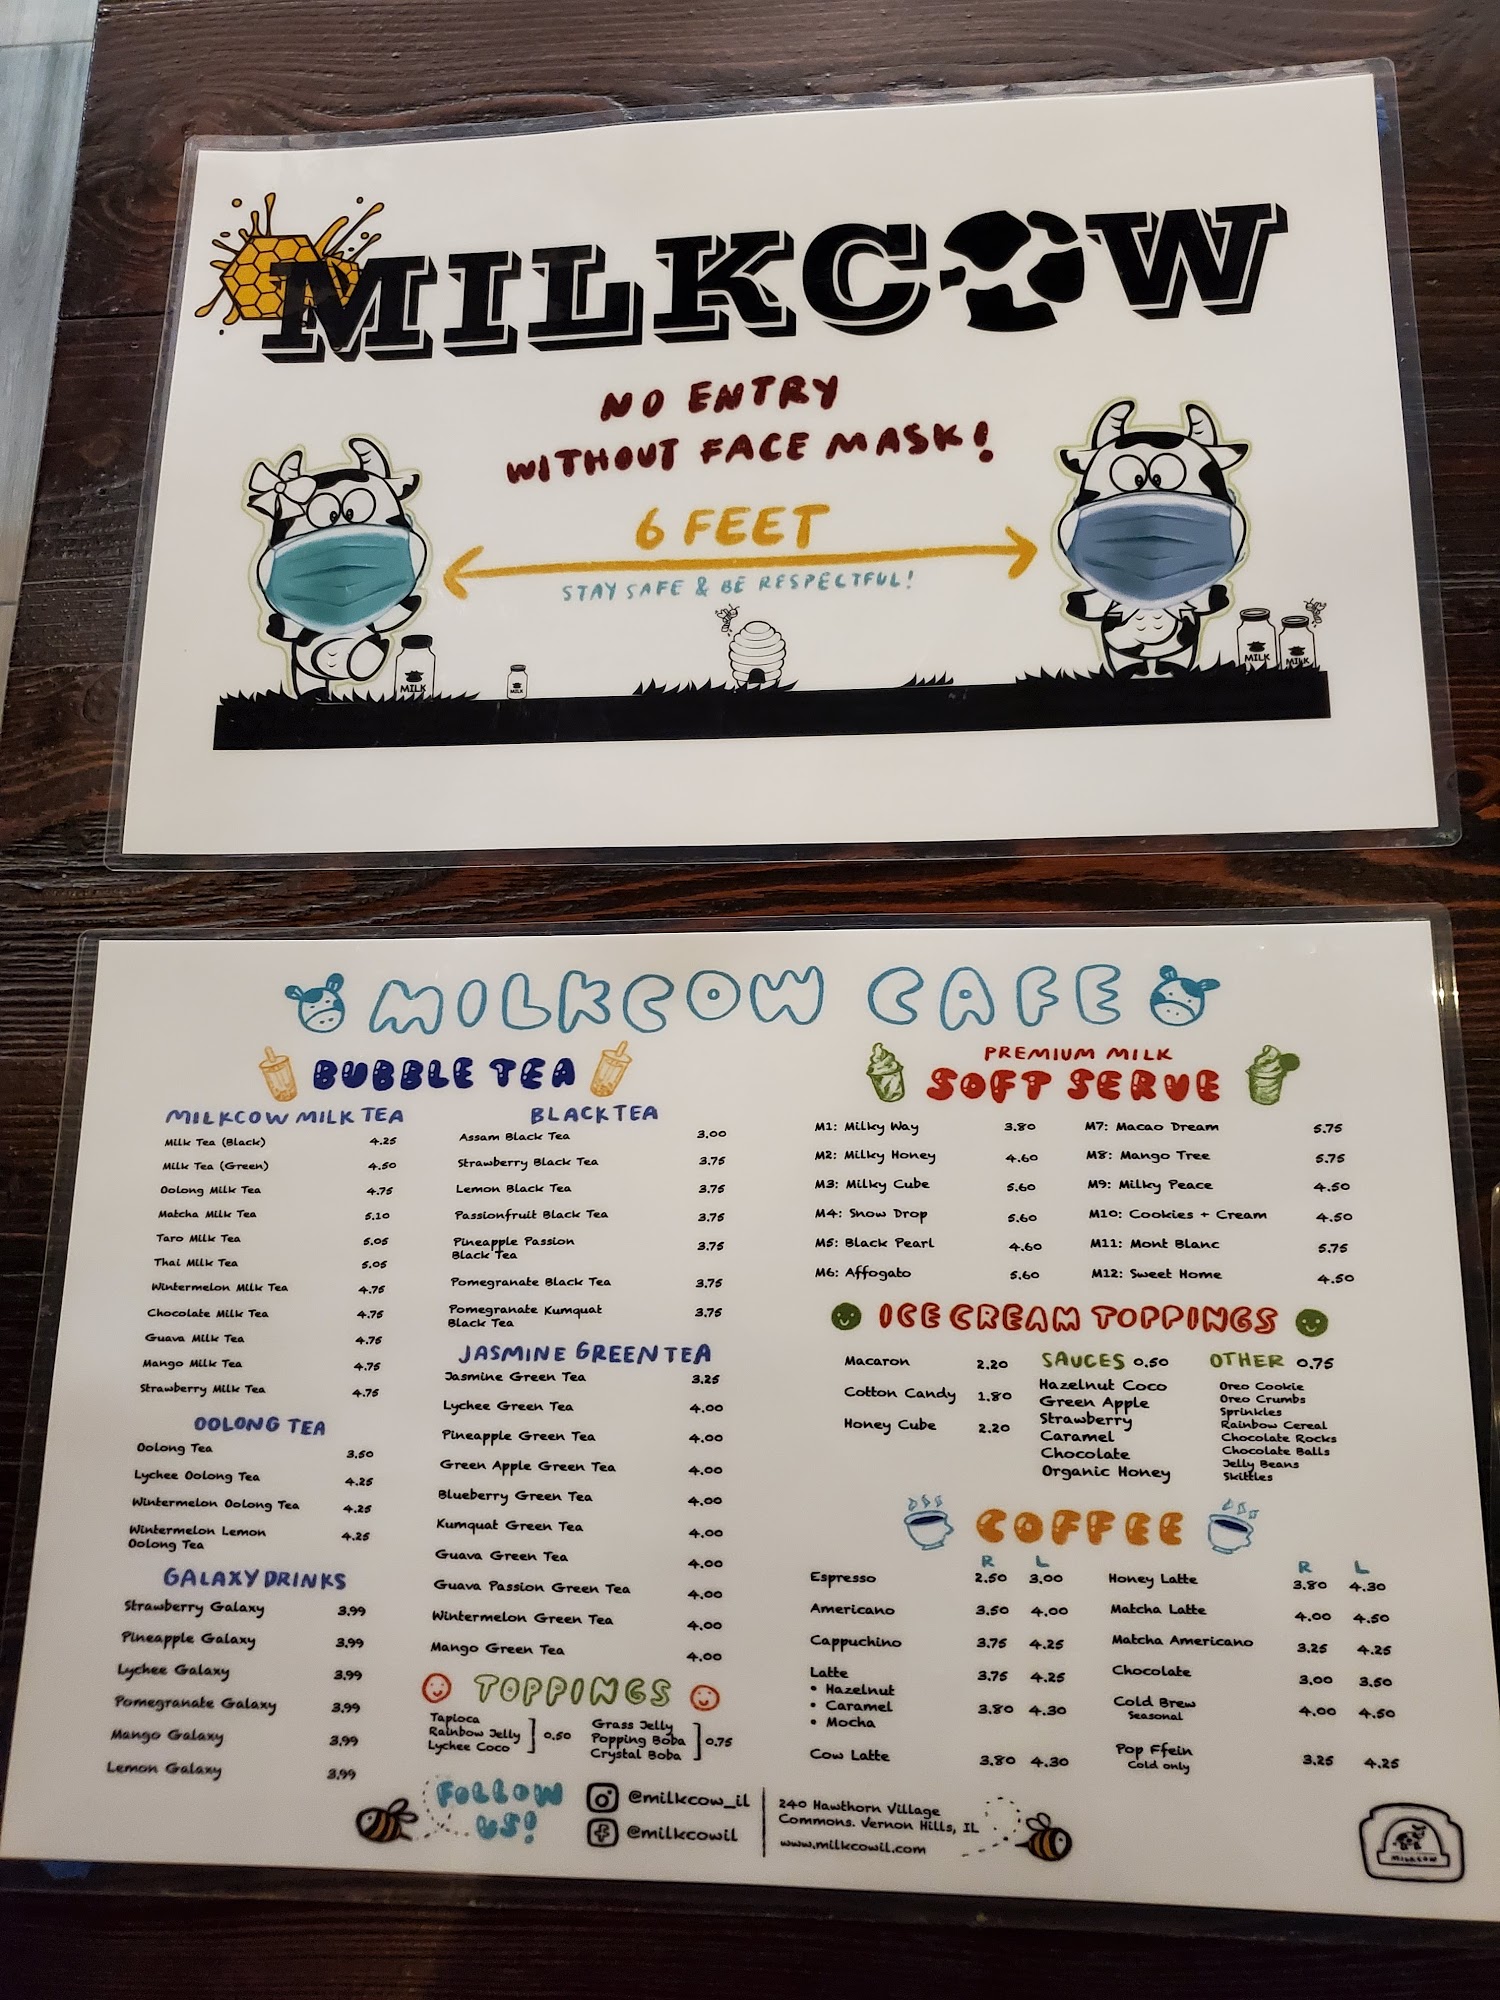 MILKCOW
NO ENTRY
WITHOUT FACE MASK!
6 FEET
STAY SAFE & BE RESPECTFUL!
MILK
MILK
MILK
MILK
MILKCOW CAFE
BUBBLE TEA
MILKCOW MILK TEA
Milk Tea (Black) 4.25
Milk Tea (Green) 4.50
Oolong Milk Tea 4.75
Matcha Milk Tea 5.10
Taro Milk Tea 5.05
Thai Milk Tea 5.05
Wintermelon Milk Tea 4.75
Chocolate Milk Tea 4.75
Guava Milk Tea 4.75
Mango Milk Tea 4.75
Strawberry Milk Tea 4.75
OOLONG TEA
Oolong Tea 3.50
Lychee Oolong Tea 4.25
Wintermelon Oolong Tea 4.25
Wintermelon Lemon
Oolong Tea 4.25
GALAXY DRINKS
Strawberry Galaxy 3.99
Pineapple Galaxy 3.99
Lychee Galaxy 3.99
Pomegranate Galaxy 3.99
Mango Galaxy 3.99
Lemon Galaxy 3.99
BLACK TEA
Assam Black Tea 3.00
Strawberry Black Tea 3.75
Lemon Black Tea 3.75
Passionfruit Black Tea 3.75
Pineapple Passion
Black Tea 3.75
Pomegranate Black Tea 3.75
Pomegranate Kumquat
Black Tea 3.75
JASMINE GREEN TEA
Jasmine Green Tea 3.25
Lychee Green Tea 4.00
Pineapple Green Tea 4.00
Green Apple Green Tea 4.00
Blueberry Green Tea 4.00
Kumquat Green Tea 4.00
Guava Green Tea 4.00
Guava Passion Green Tea 4.00
Wintermelon Green Tea 4.00
Mango Green Tea 4.00
TOPPINGS
Tapioca
Rainbow Jelly 0.50
Lychee Coco
Grass Jelly
Popping Boba 0.75
Crystal Boba
PREMIUM MILK
SOFT SERVE
M1: Milky Way 3.80
M2: Milky Honey 4.60
M3: Milky Cube 5.60
M4: Snow Drop 5.60
M5: Black Pearl 4.60
M6: Affogato 5.60
M7: Macao Dream 5.75
M8: Mango Tree 5.75
M9: Milky Peace 4.50
M10: Cookies + Cream 4.50
M11: Mont Blanc 5.75
M12: Sweet Home 4.50
ICE CREAM TOPPINGS
Macaron 2.20
Cotton Candy 1.80
Honey Cube 2.20
SAUCES 0.50
Hazelnut Coco
Green Apple
Strawberry
Caramel
Chocolate
Organic Honey
OTHER 0.75
Oreo Cookie
Oreo Crumbs
Sprinkles
Rainbow Cereal
Chocolate Rocks
Chocolate Balls
Jelly Beans
Skittles
COFFEE
R L
Espresso 2.50 3.00
Americano 3.50 4.00
Cappuchino 3.75 4.25
Latte 3.75 4.25
• Hazelnut
• Caramel 3.80 4.30
• Mocha
Cow Latte 3.80 4.30
R L
Honey Latte 3.80 4.30
Matcha Latte 4.00 4.50
Matcha Americano 3.25 4.25
Chocolate 3.00 3.50
Cold Brew 4.00 4.50
Seasonal
Pop Ffein 3.25 4.25
Cold only
FOLLOW
US!
@milkcow_il
@milkcowil
240 Hawthorn Village
Commons. Vernon Hills, IL
www.milkcowil.com
MILKCOW